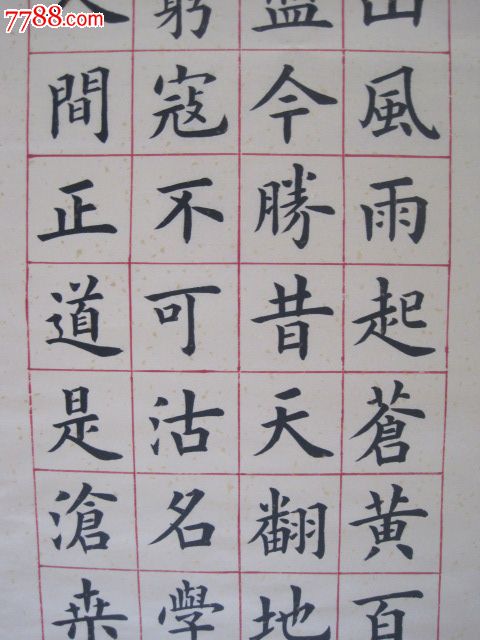 7788.com
山風雨起蒼黃百
盤今勝昔天翻地
窮寇不可沽名學
人間正道是滄桒